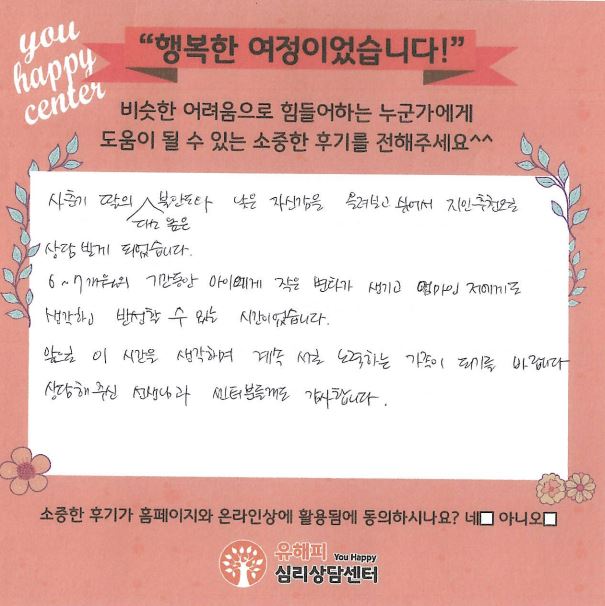 you
happy
center
“행복한 여정이었습니다!”
비슷한 어려움으로 힘들어하는 누군가에게
도움이 될 수 있는 소중한 후기를 전해주세요^^
사춘기 딸의 낮은 자신감을 올려보고 싶어서 지인추천으로
높은
상담 받게 되었습니다.
6~7개월의 기간동안 아이에게 작은 변화가 생기고 엄마인 저에게도
생각하고 반성할 수 있는 시간이었습니다.
앞으로 이 시간을 생각하며 계속 서로 노력하는 가족이 되기를 바랍니다
상담해주신 선생님과 센터분들께도 감사합니다.
소중한 후기가 홈페이지와 온라인상에 활용됨에 동의하시나요? 네□ 아니오□
유해피 You Happy
심리상담센터